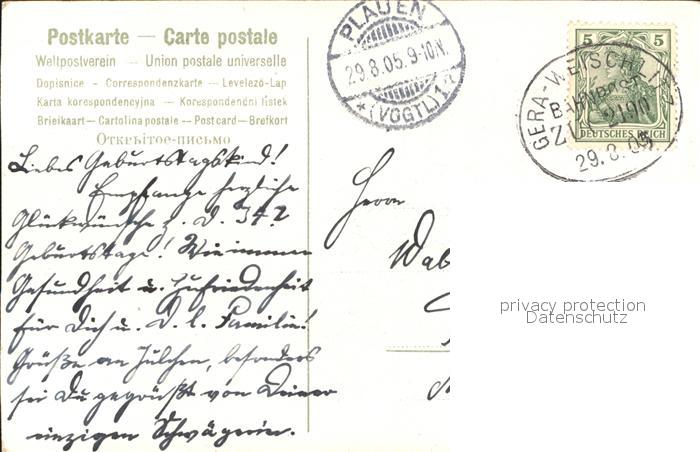 Postkarte — Carte postale
Weltpostverein — Union postale universelle
Dopisnice - Correspondenzkarte — Levelező-Lap
Karta korespondencyjna — Korespondenční lístek
Brieikaart — Cartolina postale — Post card — Brefkort
Открытое-письмо
PLAUEN
29.8.05.9-10N.
*(VOGTL)1
5 5
DEUTSCHES REICH
GERA-WEISCHLITZ
BAHNPOST
ZUG 2190
29.8.05
Liebes Geburtstagskind!
Empfange herzliche
Glückwünsche z. D. 34?
Geburtstage! Wie immer
Gesundheit u. Zufriedenheit
für Dich u. D. l. Familie!
Grüße an Julchen, besonders
sei Du gegrüßt von Deiner
einzigen Schwägerin.
Herrn
privacy protection
Datenschutz